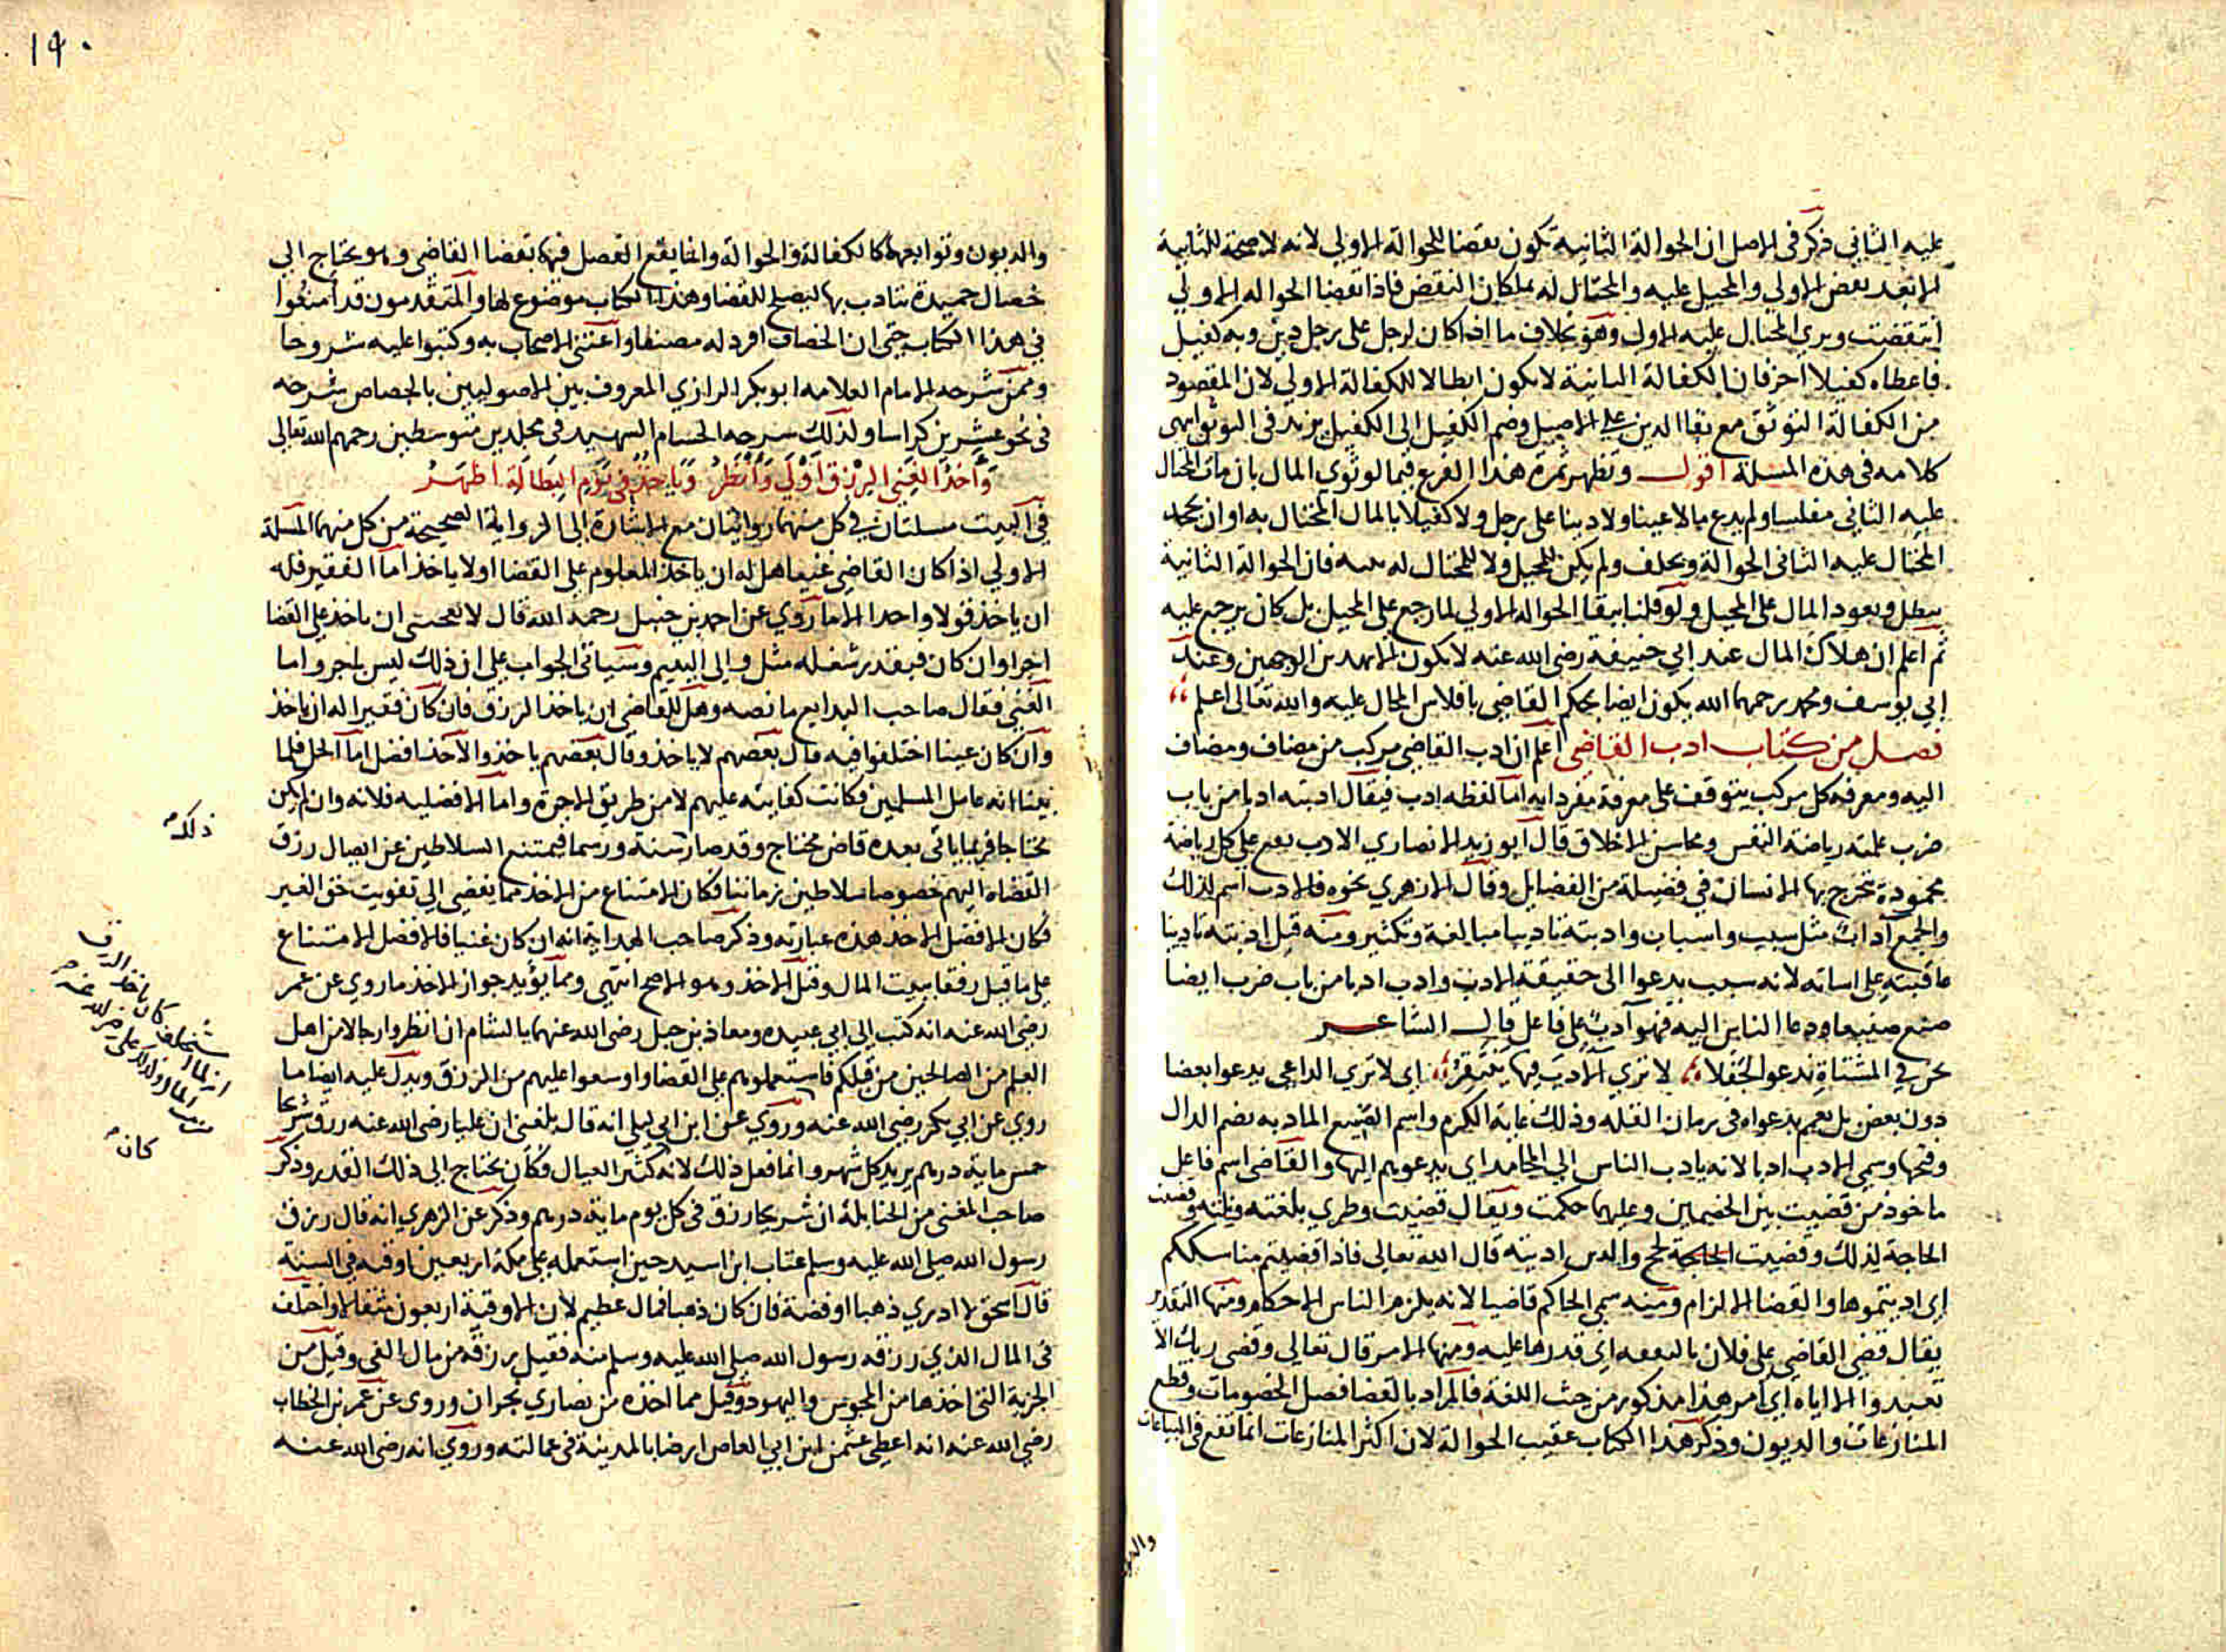 عليه الثاني ذكر في الاصل ان الحوالة الثانية تكون نقضا للحوالة الاولي لانه لا صحة للثانية
الا بعد نقض الاولي والمحيل عليه والمحتال له يملكان النقض فاذا نقضا الحواله الاولي
انتقضت وبري المحتال عليه الاول وهو بخلاف ما اذا كان لرجل على رجل دين وبه كفيل
فاعطاه كفيلا اخر فان الكفالة الثانية لا تكون ابطالا للكفالة الاولي لان المقصود
من الكفالة التوثق مع بقا الدين على الاصيل وضم الكفيل الى الكفيل يزيد في التوثق انتهى
كلامه في هذه المسلة اقول وتظهر ثمرة هذا الفرع فيما لو توي المال بان مات المحتال
عليه الثاني مفلسا ولم يدع مالا عينا ولا دينا على رجل ولا كفيلا بالمال المحتال به او ان يجحد
المحتال عليه الثاني الحوالة ويحلف ولم يكن للمحيل ولا للمحتال له بينه فان الحوالة الثانية
تبطل ويعود المال على المحيل ولو قلنا ببقا الحواله الاولي لما رجع على المحيل بل كان يرجع عليه
ثم اعلم ان هلاك المال عند ابي حنيفة رضي الله عنه لا يكون الا بهدين الوجهين وعند
ابي يوسف ومحمد رحمهما الله يكون ايضا بحكم القاضي بافلاس المحال عليه والله تعالى اعلم
فصل من كتاب ادب القاضي اعلم ان ادب القاضي مركب من مضاف ومضاف
اليه ومعرفه كل مركب يتوقف على معرفة مفرداته اما لفظه ادب فيقال ادبته ادبا من باب
ضرب علمته رياضة النفس ومحاسن الاخلاق قال ابو زيد الانصاري الادب يقع علي كل رياضة
محمودة يتخرج بها الانسان في فضيلة من الفضايل وقال الازهري نحوه فالادب اسم لذلك
والجمع آداب مثل سبب واسباب وادبته تاديبا مبالغة وتكثير ومنه قيل ادبته تاديبا
عاقبته على اساته لانه سبب يدعوا الى حقيقة الادب وادب ادبا من باب ضرب ايضا
صنع صنيعا ودعا الناس اليه فهو آدب على فاعل قال الشاعر
نحن في المشتاة ندعو الجفلا لا تري الآدب فيها ينتقر اي لا تري الداعي يدعوا بعضا
دون بعض بل يعم بدعواه في زمان القله وذلك غاية الكرم واسم الصنيع المادبه بضم الدال
وفتحها وسمي الادب ادبا لانه يادب الناس الى المحامد اي يدعوهم اليها والقاضي اسم فاعل
ماخوذ من قضيت بين الخصمين وعليهما حكمت ويقال قضيت وطري بلغته ونلته وقضيت
الحاجة لذلك وقضيت الحاجة لحج والدين اديته قال الله تعالى فاذا قضيتم مناسككم
اي اديتموها والقضا الالزام ومنه سمي الحاكم قاضيا لانه يلزم الناس الاحكام ومنها التقدير
يقال قضى القاضي على فلان بالنفقه اي قدرها عليه ومنها الامر قال تعالى وقضى ربك الا
تعبدوا الا اياه اي امر هذا مذكور من حيث اللغة فالمراد بالقضا فصل الخصومات وقطع
المنازعات والديون وذكر هذا الكتاب عقيب الحوالة لان اكثر المنازعات انما تقع في البياعات
والديون
١٩٠
والديون وتوابعها كالكفالة والحوالة وانما يقع الفصل فيها بقضا القاضي وهو يحتاج الى
خصال حميدة يتادب بها ليصلح للقضا وهذا الكتاب موضوع لها والمتقدمون قد امتعوا
في هذا الكتاب حتى ان الخصاف افرد له مصنفا واعتنى الاصحاب به وكتبوا عليه شروحا
وممن شرحه الامام العلامه ابو بكر الرازي المعروف بين الاصوليين بالجصاص شرحه
في نحو عشرين كراسا وكذلك شرحه الحسام الشهيد في مجلدين متوسطين رحمهم الله تعالى
وَأَخْذُ الغَنِي الرِزْقَ اَوْلَى وَأَنْظَرُ وَيَاخُذُ فِي يَوْمِ البَطَالَةِ اظْهَرُ
في البيت مسلتان في كل منهما روايتان مع الاشارة الى الرواية الصحيحة من كل منهما المسلة
الاولي اذا كان القاضي غنيا هل له ان ياخذ المعلوم على القضا اولا ياخذ اما الفقير فله
ان ياخذ قولا واحدا الا ما روي عن احمد بن حنبل رحمه الله قال لا يعجبني ان ياخذ على القضا
اجرا وان كان فبقدر شغله مثل والى اليتيم وسياتي الجواب على ان ذلك ليس باجر واما
الغني فقال صاحب البدايع ما نصه وهل للقاضي ان ياخذ الرزق فان كان فقيرا له ان ياخذ
وان كان غنيا اختلفوا فيه قال بعضهم لا ياخذ وقال بعضهم ياخذ والاخذ افضل اما الحل فلما
بينا انه عامل المسلمين فكانت كفايته عليهم لا من طريق الاجرة واما الافضليه فلانه وان لم يكن
محتاجا فربما ياتي بعده قاض محتاج وقد صار سنة ورسما فيمتنع السلاطين عن ايصال رزق
القضاه اليهم خصوصا سلاطين زماننا فكان الامتناع من الاخذ مما يفضي الى تفويت حق الغير
فكان الافضل الاخذ هذه عبارته وذكر صاحب الهداية انه ان كان غنيا فالافضل الامتناع
على ما قيل رفقا ببيت المال وقيل الاخذ وهو الاصح انتهى ومما يؤيد جواز الاخذ ما روي عن عمر
رضي الله عنه انه كتب الى ابي عبيده ومعاذ بن جبل رضي الله عنهما بالشام ان انظروا رجالا من اهل
العلم من الصالحين من قبلكم فاستعملوهم على القضا واوسعوا عليهم من الرزق ويدل عليه ايضا ما
روي عن ابي بكر رضي الله عنه وروي عن ابن ابي ليلى انه قال بلغني ان عليا رضي الله عنه رزق شريحا
خمس ماية درهم يريد كل شهر وانما فعل ذلك لانه كثير العيال وكان يحتاج الى ذلك القدر وذكر
صاحب المغني من الحنابلة ان شريحا رزق في كل يوم ماية درهم وذكر عن الزهري انه قال رزق
رسول الله صلى الله عليه وسلم عتاب ابن اسيد حين استعمله على مكة اربعين اوقيه في السنة
قال اسحق لا ادري ذهبا او فضة فان كان ذهبا فمال عظيم لان الاوقية اربعون مثقالا واختلف
في المال الذي رزقه رسول الله صلى الله عليه وسلم منه فقيل رزقه من مال الفي وقيل من
الجزية التي اخذها من المجوس واليهود وقيل مما اخذه من نصاري نجران وروى عن عمر بن الخطاب
رضي الله عنه انه اعطى عثمن ابن ابي العاص ارضا بالمدينة في عمالته وروي انه رضي الله عنه
ذلك
كان ياخذ الرزق
كان